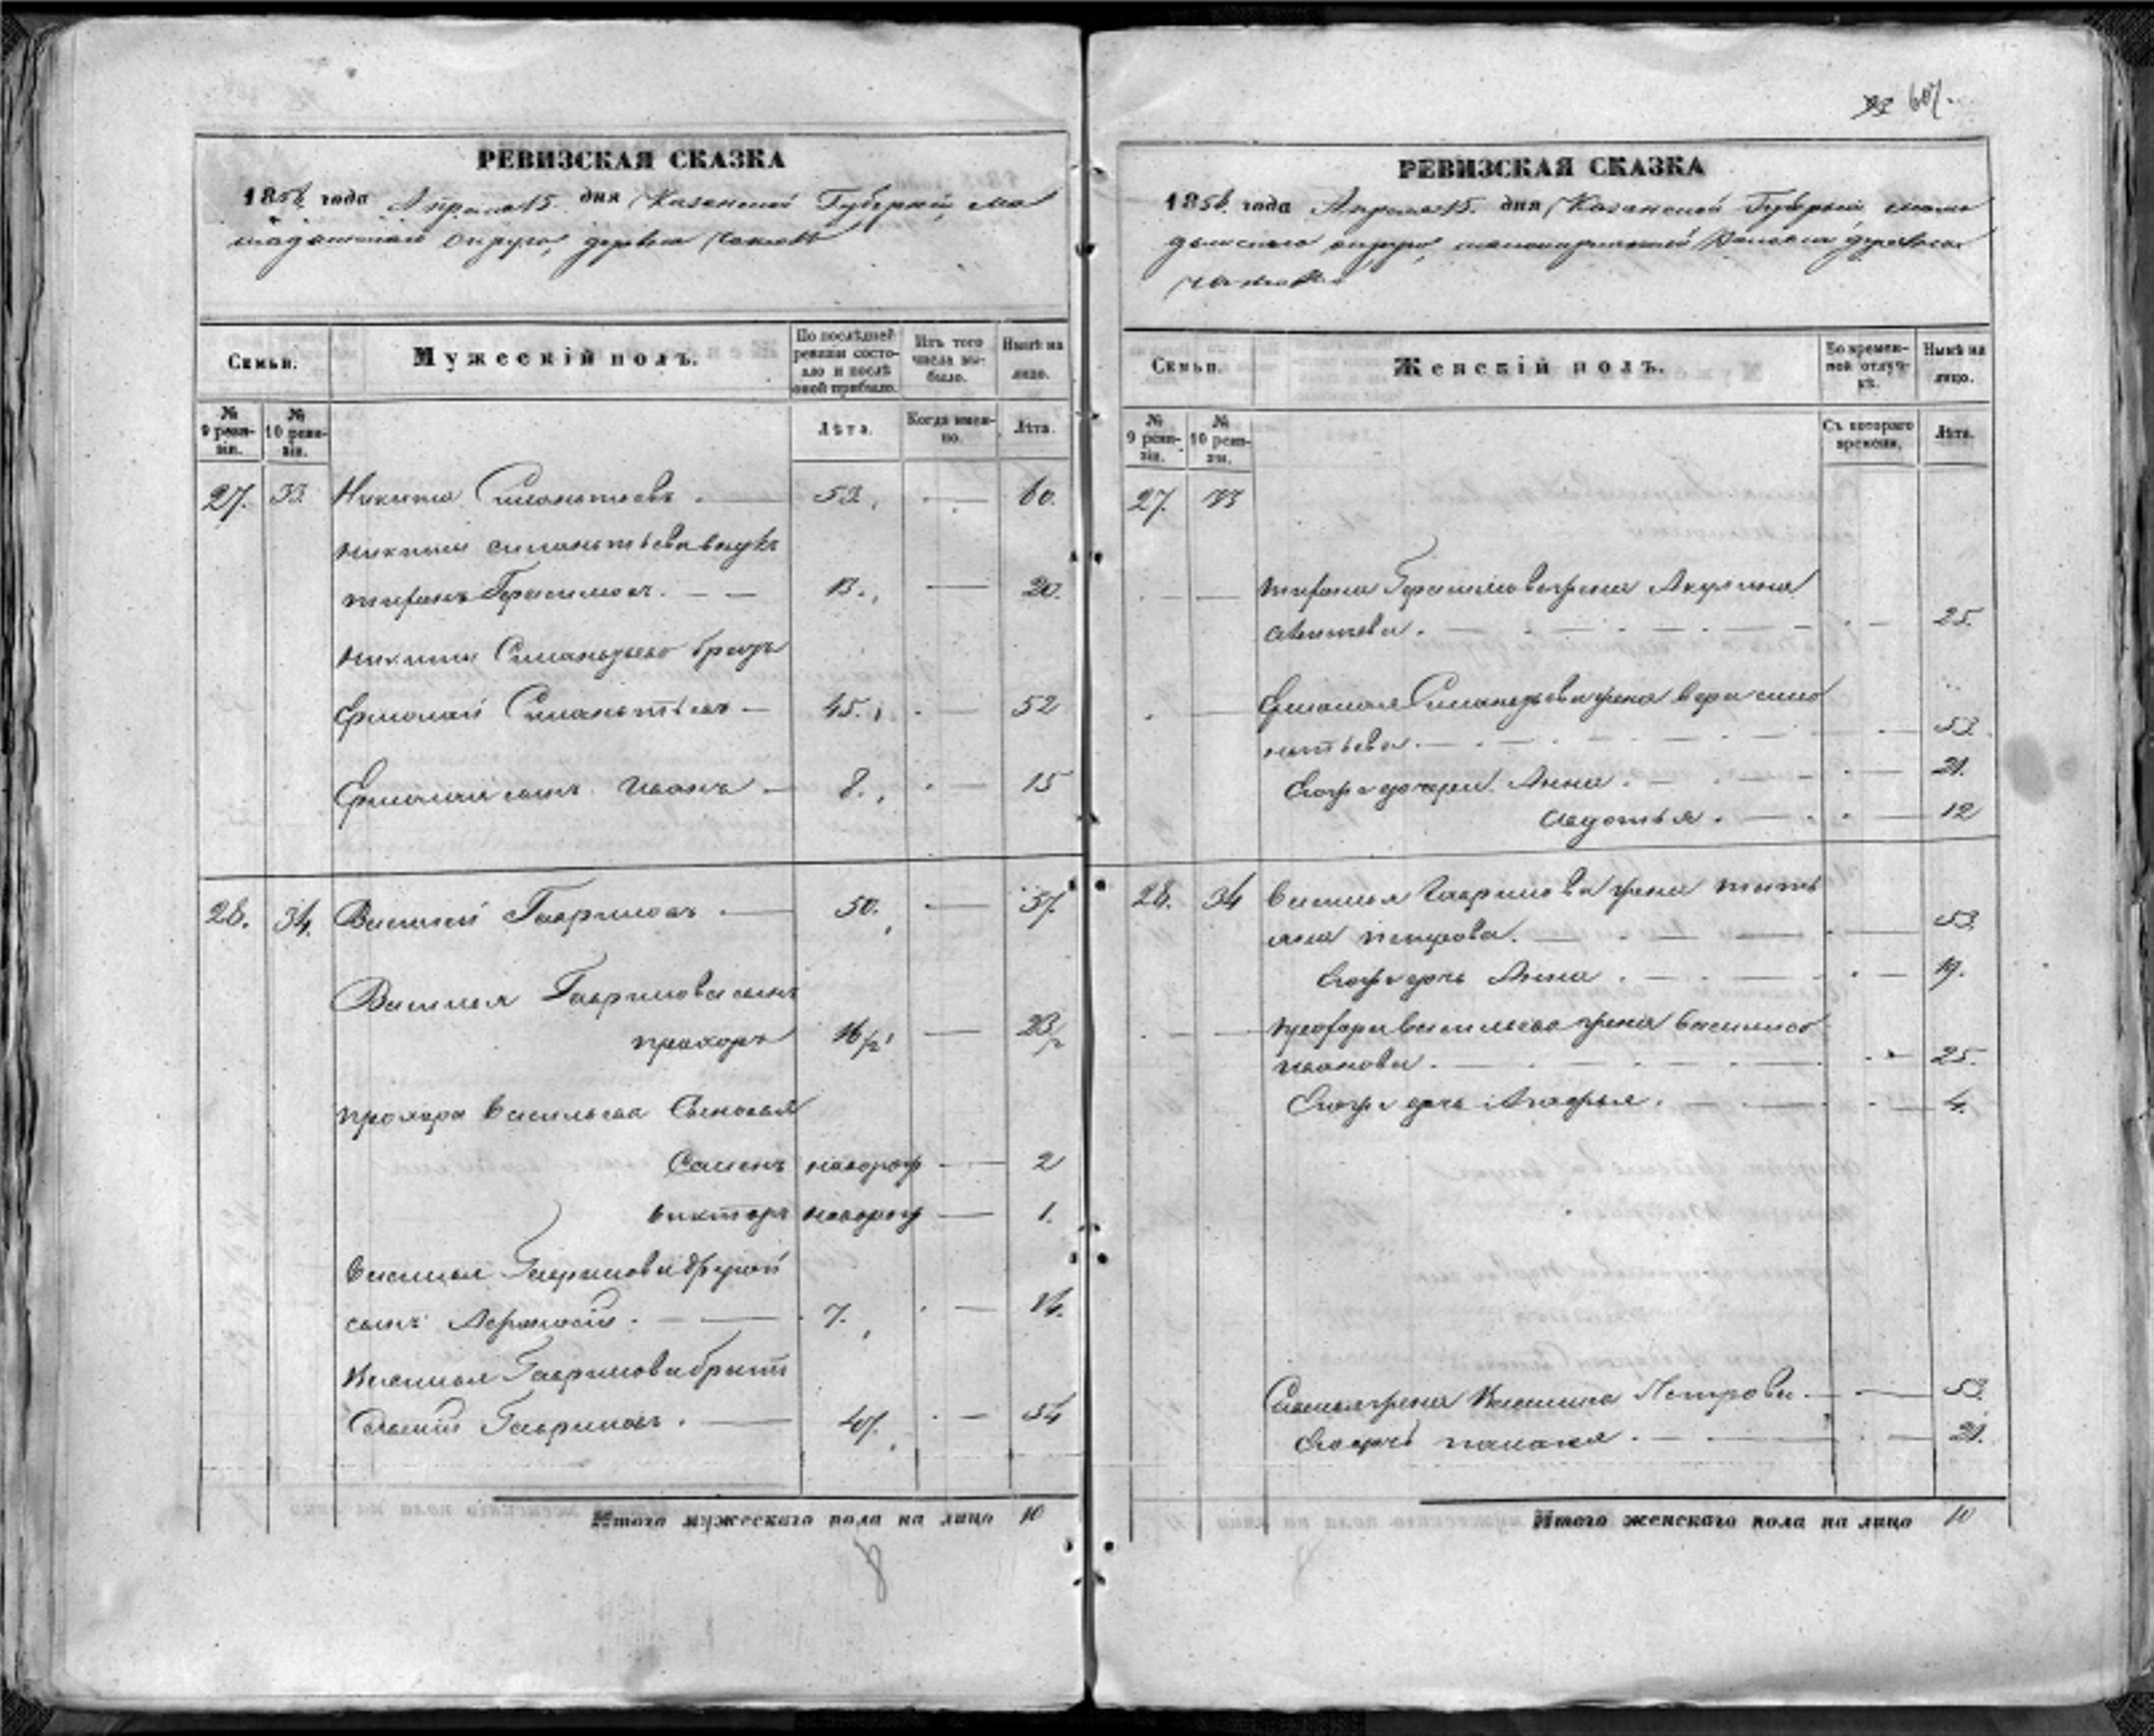 607.
РЕВИЗСКАЯ СКАЗКА
1858 года Апреля 15 дня Казанской Губернии, Ма
мадышского округа, деревни
Семьи.
Мужескій полъ.
По послѣдней ревизіи состояло и послѣ оной прибыло.
Изъ того числа выбыло.
Нынѣ на лицо.
№ 9 ревизіи.
№ 10 ревизіи.
Лѣта.
Когда именно.
Лѣта.
27. 33. Никита Силантьевъ . — 53. — 60.
Никиты Силантьева внукъ
Герасимовъ. — — 13. — 20.
Никиты Силантьева братъ
Ермолай Силантьевъ — 45. — 52
Ермолая сынъ Иванъ — 8. — 15
28. 34. Василій Гавриловъ . — 50. — 57.
Василья Гаврилова сынъ
Прохоръ 16/2 — 23/2
Прохора Васильева Сыновья
Семенъ новорож — 2
Викторъ новорож — 1.
Василья Гаврилова другой
сынъ . — 7. — 14.
Василья Гаврилова братъ
Гавриловъ . — 47. — 54
Итого мужескаго пола на лицо 10
РЕВИЗСКАЯ СКАЗКА
1858 года Апреля 15 дня Казанской Губернии, Мама
дышского округа, волости деревни
Семьи.
Женскій полъ.
Во временной отлучкѣ.
Нынѣ на лицо.
№ 9 ревизіи.
№ 10 ревизіи.
Съ котораго времени.
Лѣта.
27. 33
Герасимова жена Акулина
. — 25.
Ермолая Силантьева жена Вера Сила
нтьева. — 53.
Его же дочери Анна . — 21.
Авдотья . — 12
28. 34 Василья Гаврилова жена Тать
яна Петрова. — 53.
Его же дочь Анна . — 19.
Прохора Васильева жена Василиса
Иванова . — 25.
Его же дочь . — 4.
жена Петрова . — 53.
Его дочь . — 21.
Итого женскаго пола на лицо 10